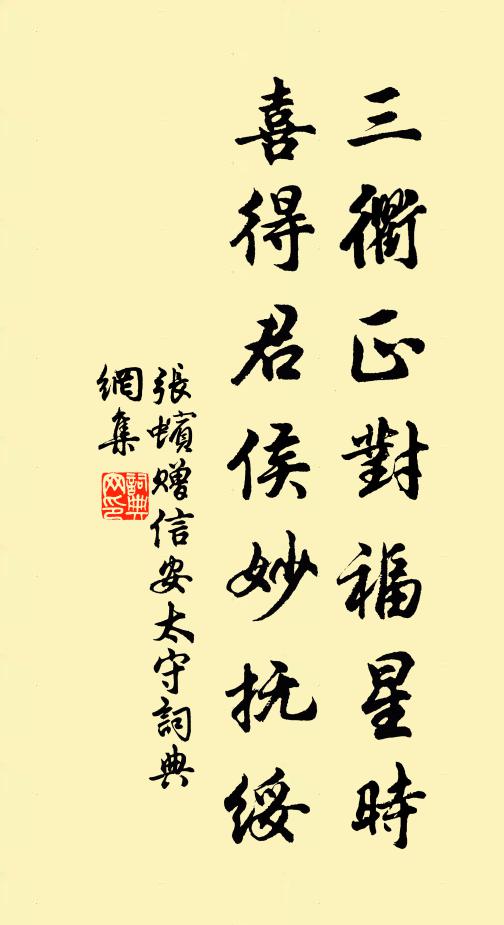 三衢正對福星時
喜得君侯妙抚綏
張蠙赠信安太守詞典
網集
詞典网印